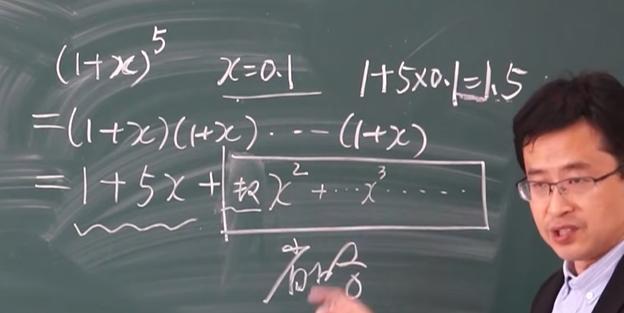 (1+x)^5 x=0.1 1+5×0.1=1.5
=(1+x)(1+x)⋯(1+x)
=1+5x+ x^2+⋯x^3⋯⋯
省略